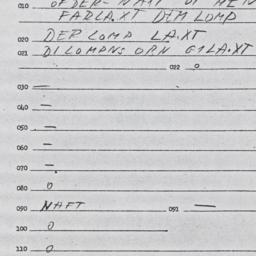 010 OF DER- NAFT
FADLA.XT DEM LOMP
020 DEP LOMP LA.XT
021 DILOMPNS ORN G1LA.XT
022 0
030 —
040 —
050 —
060 —
070 —
080 0
090 NAFT 091 —
100 0
110 0